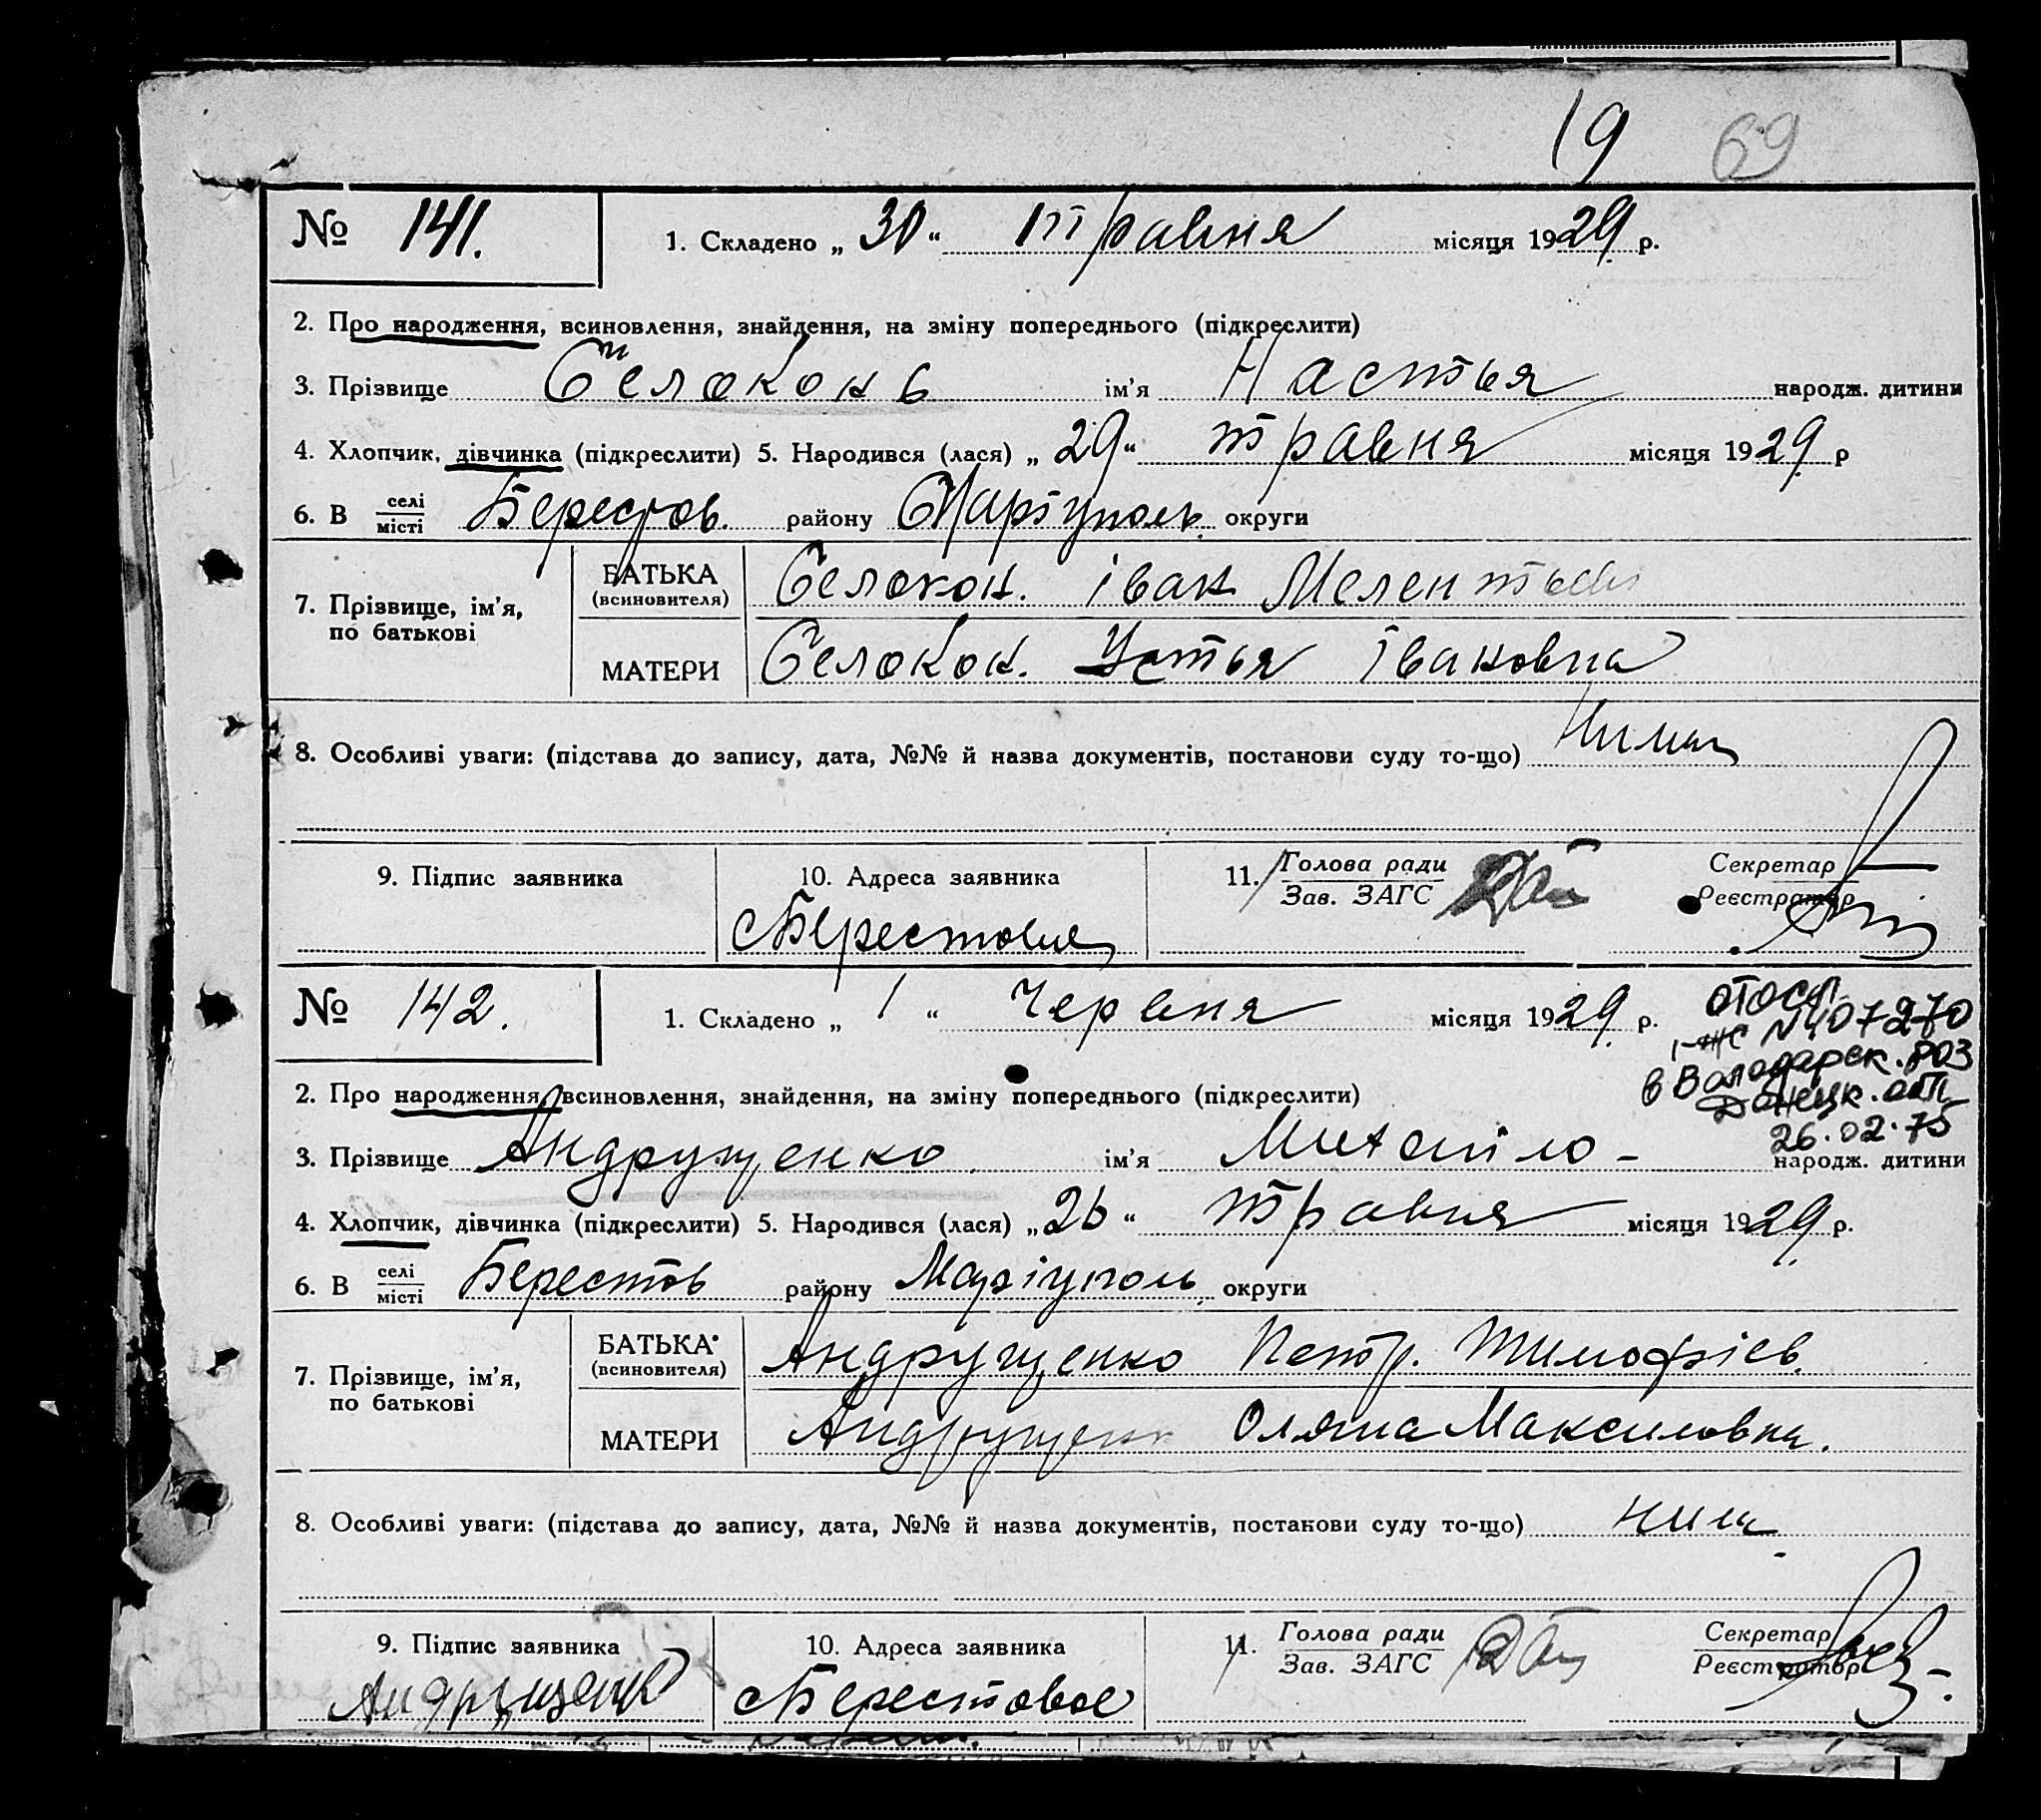 19 69
№ 141. 1. Складено „ 30 “ травня місяця 1929 р.
2. Про народження, всиновлення, знайдення, на зміну попереднього (підкреслити)
3. Прізвище Белоконь ім’я Настья народж. дитини
4. Хлопчик, дівчинка (підкреслити) 5. Народився (лася) „ 29 “ травня місяця 1929 р
6. В селі місті Берестов. району Маріуполь. округи
7. Прізвище, ім’я, по батькові
БАТЬКА (всиновителя) Белокон. Іван Мелентьев
МАТЕРИ Белокон. Устья Івановна
8. Особливі уваги: (підстава до запису, дата, №№ й назва документів, постанови суду то-що)
9. Підпис заявника 10. Адреса заявника 11. Голова ради Зав. ЗАГС Секретар Реєстратор
с Берестовое
№ 142. 1. Складено „ 1 “ Червня місяця 1929 р.
отосл.
I-ЖС N407270
в Володарск. РОЗ
Донецк. обл
26.02.75
2. Про народження, всиновлення, знайдення, на зміну попереднього (підкреслити)
3. Прізвище Андрущенко ім’я Михайло - народж. дитини
4. Хлопчик, дівчинка (підкреслити) 5. Народився (лася) „ 26 “ травня місяця 1929 р.
6. В селі місті Берестов району Маріуполь. округи
7. Прізвище, ім’я, по батькові
БАТЬКА (всиновителя) Андрущенко Петр. Тимофієв.
МАТЕРИ Андрущенк Оляна Максимовна.
8. Особливі уваги: (підстава до запису, дата, №№ й назва документів, постанови суду то-що)
9. Підпис заявника 10. Адреса заявника 11. Голова ради Зав. ЗАГС Секретар Реєстратор
Андрущенко с Берестовое